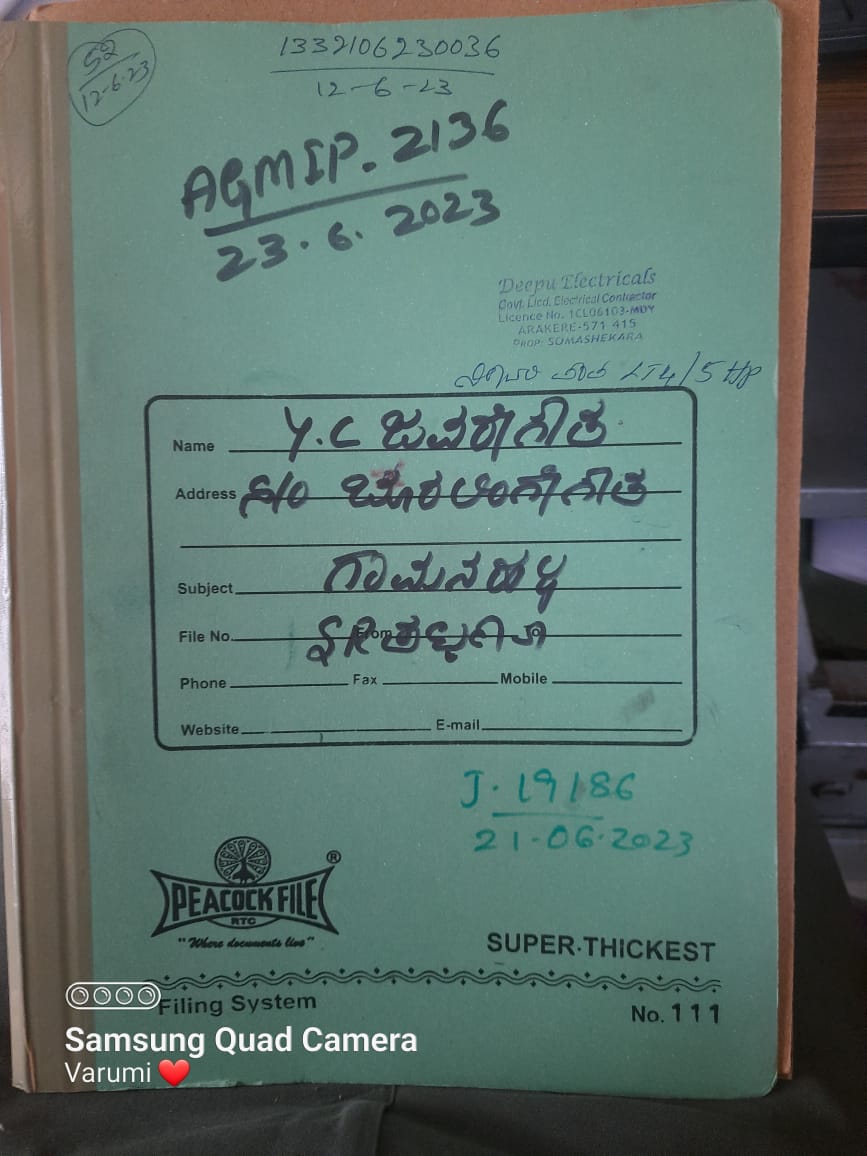 52
12-6-23
1332106230036
12-6-23
AGMIP. 2136
23.6.2023
Deepu Electricals
Govt. Licd. Electrical Contractor
Licence No. 1CL06103-MDY
ARAKERE-571 415
PROP: SOMASHEKARA
LT4/5 HP
Name Y.C ಜವರೇಗೌಡ
Address S/o
Subject ಗಾಮನಹಳ್ಳಿ
File No. From
Phone Fax Mobile
Website E-mail
J. 19186
21-06-2023
PEACOCK FILE ®
RTC
"Where documents live"
SUPER-THICKEST
Filing System
No. 111
Samsung Quad Camera
Varumi ❤️